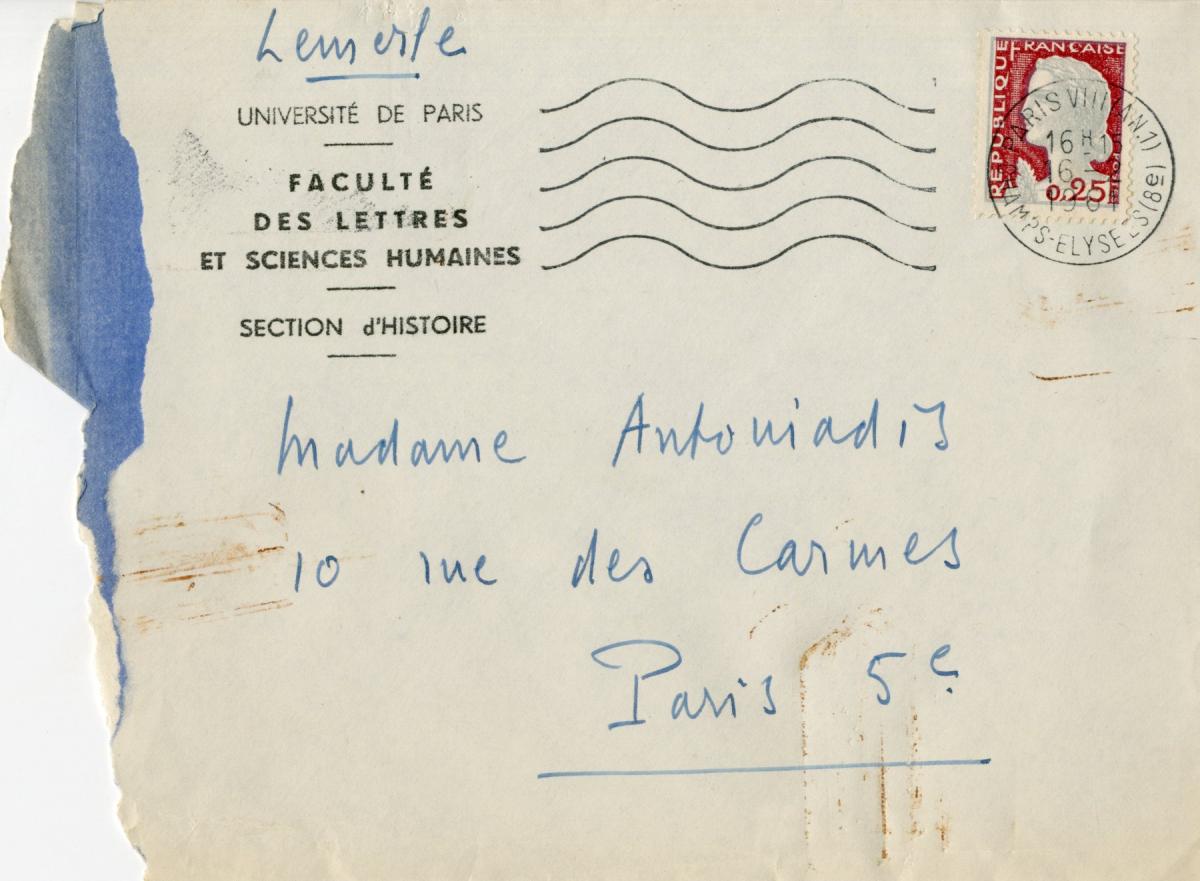 Lemerle
UNIVERSITÉ DE PARIS
FACULTÉ
DES LETTRES
ET SCIENCES HUMAINES
SECTION d'HISTOIRE
RÉPUBLIQUE FRANÇAISE
0,25
PARIS VIII (ANN.1) (8E)
16 H
16
CHAMPS-ELYSEES
Madame Antoniadis
10 rue des Carmes
Paris 5e